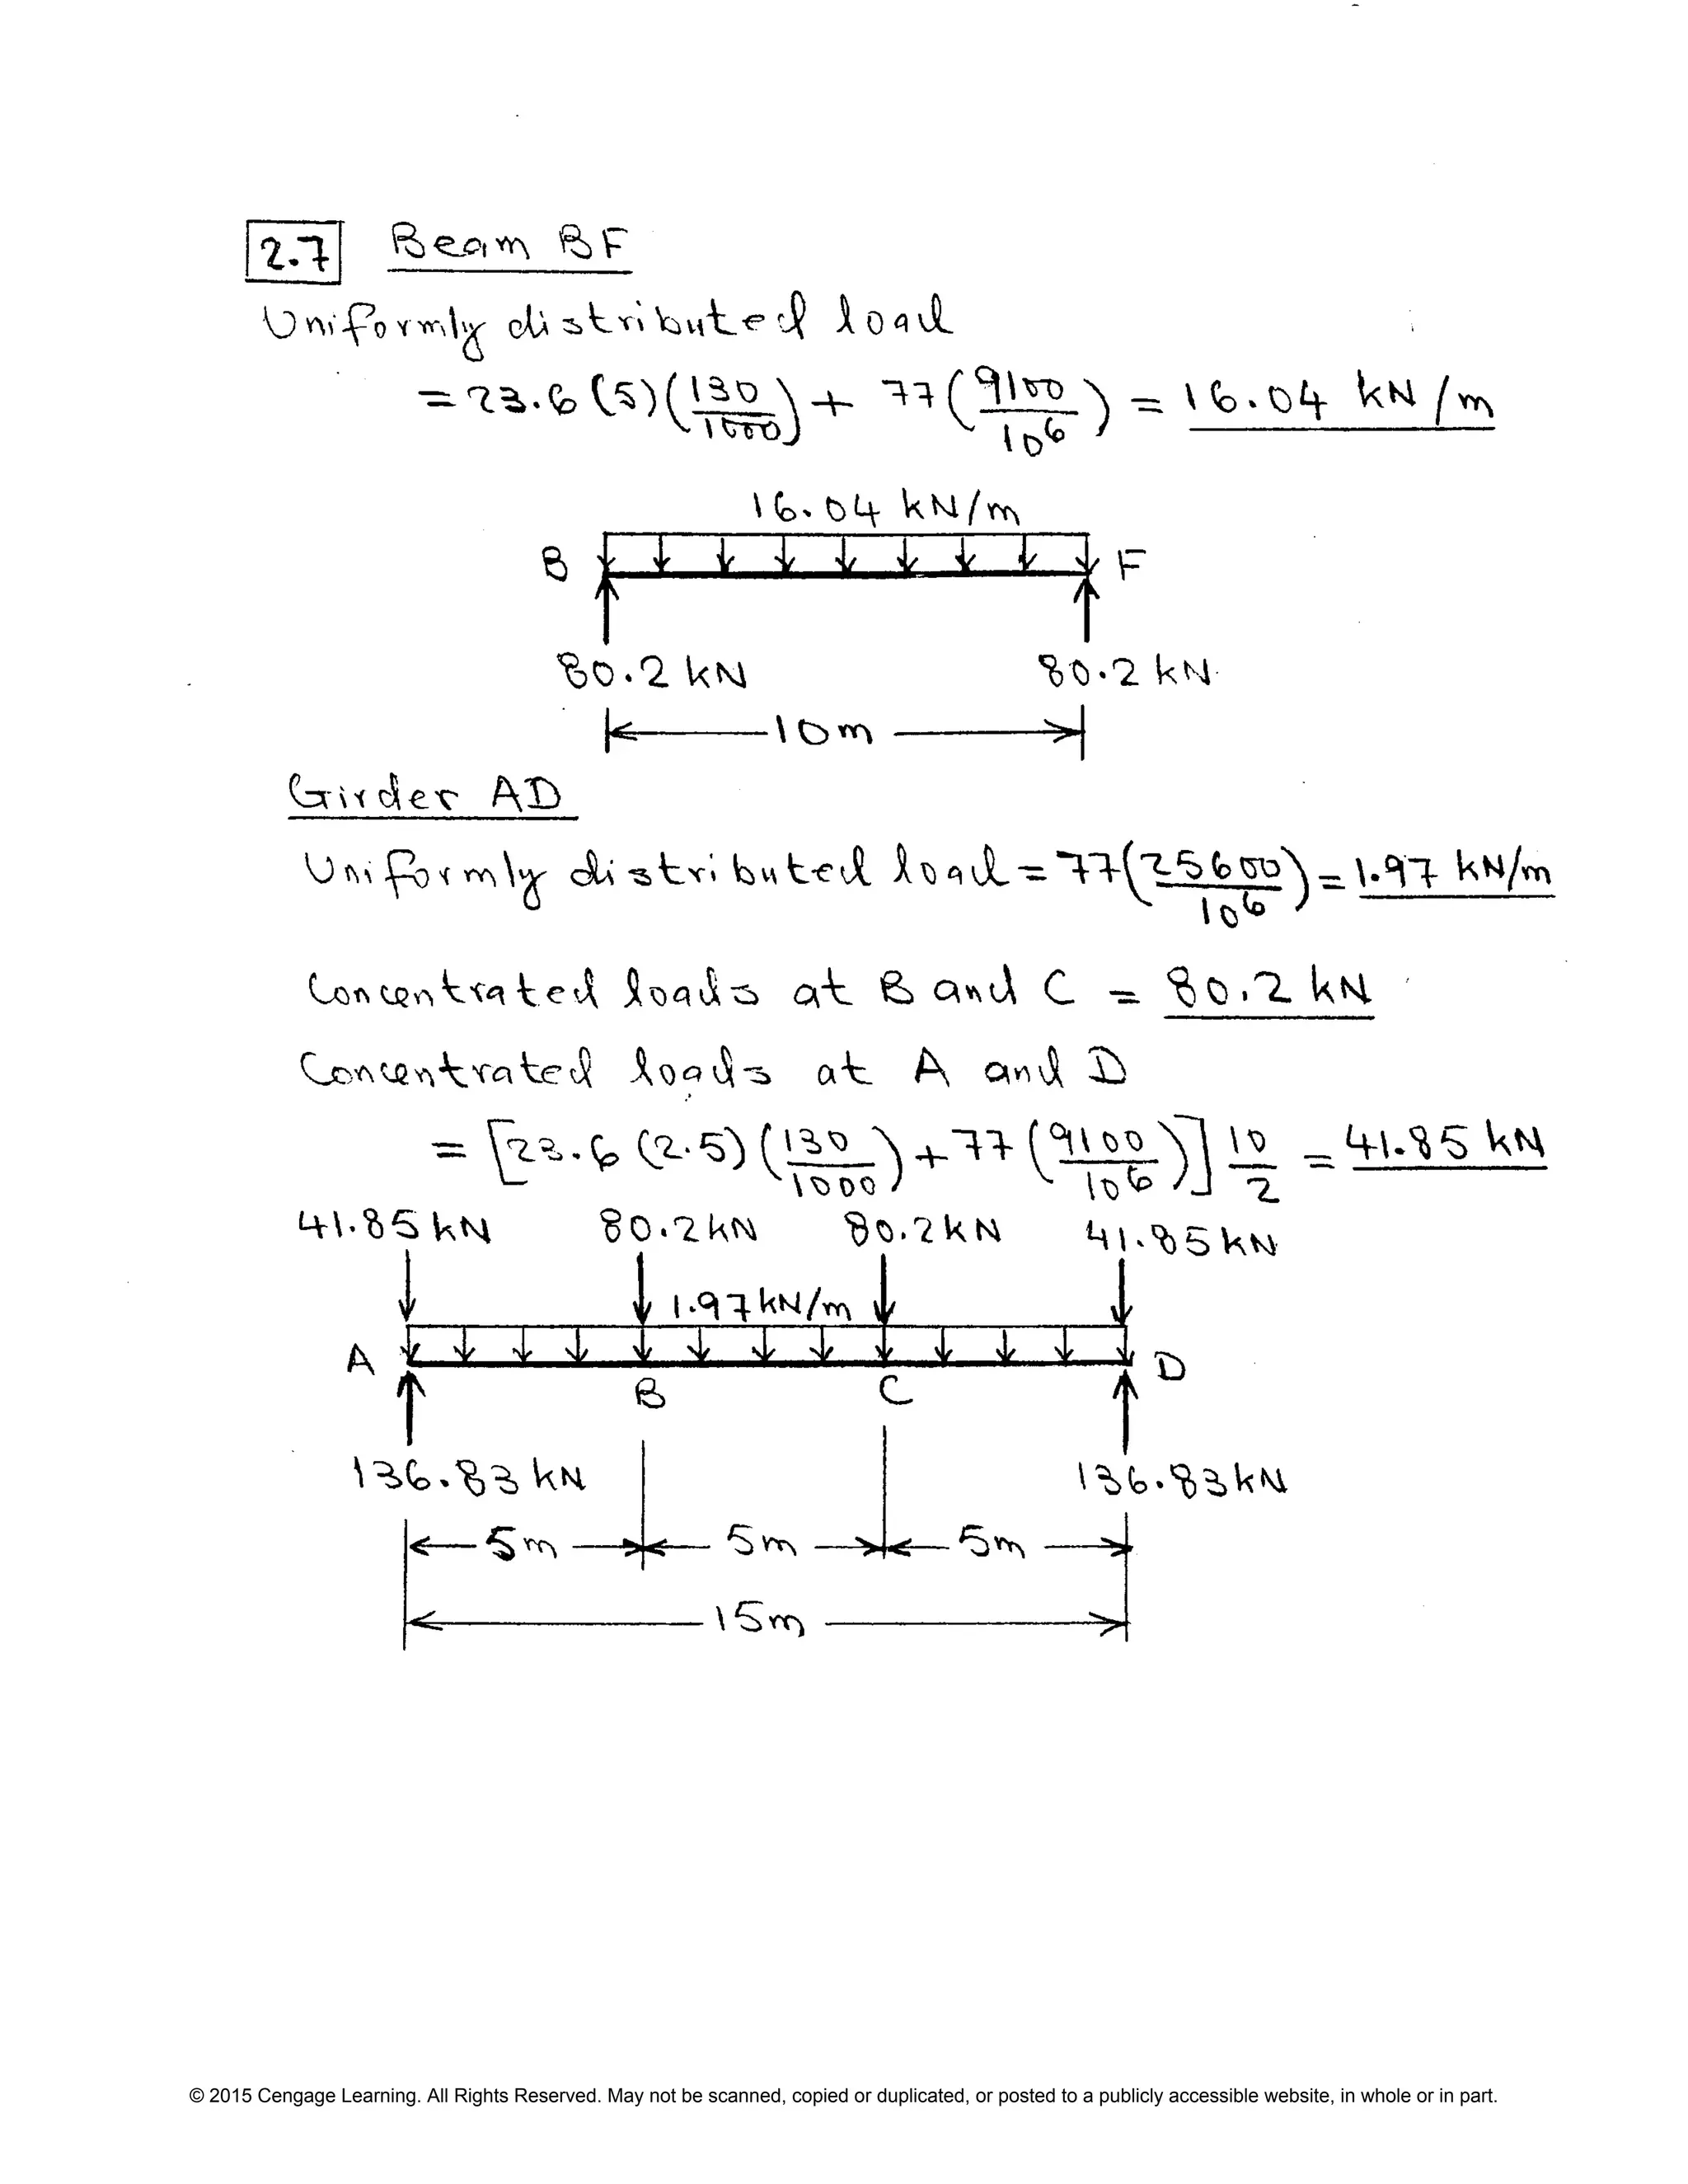 2.7 Beam BF
Uniformly distributed load
= 23.6 (5)(130/1000) + 77(9100/10^6) = 16.04 kN/m
16.04 kN/m
B F
80.2 kN 80.2 kN
10m
Girder AD
Uniformly distributed load = 77(25600/10^6) = 1.97 kN/m
Concentrated loads at B and C = 80.2 kN
Concentrated loads at A and D
= [23.6 (2.5)(130/1000) + 77(9100/10^6)] 10/2 = 41.85 kN
41.85 kN 80.2 kN 80.2 kN 41.85 kN
1.97 kN/m
A D
B C
136.83 kN 136.83 kN
5m 5m 5m
15m
© 2015 Cengage Learning. All Rights Reserved. May not be scanned, copied or duplicated, or posted to a publicly accessible website, in whole or in part.